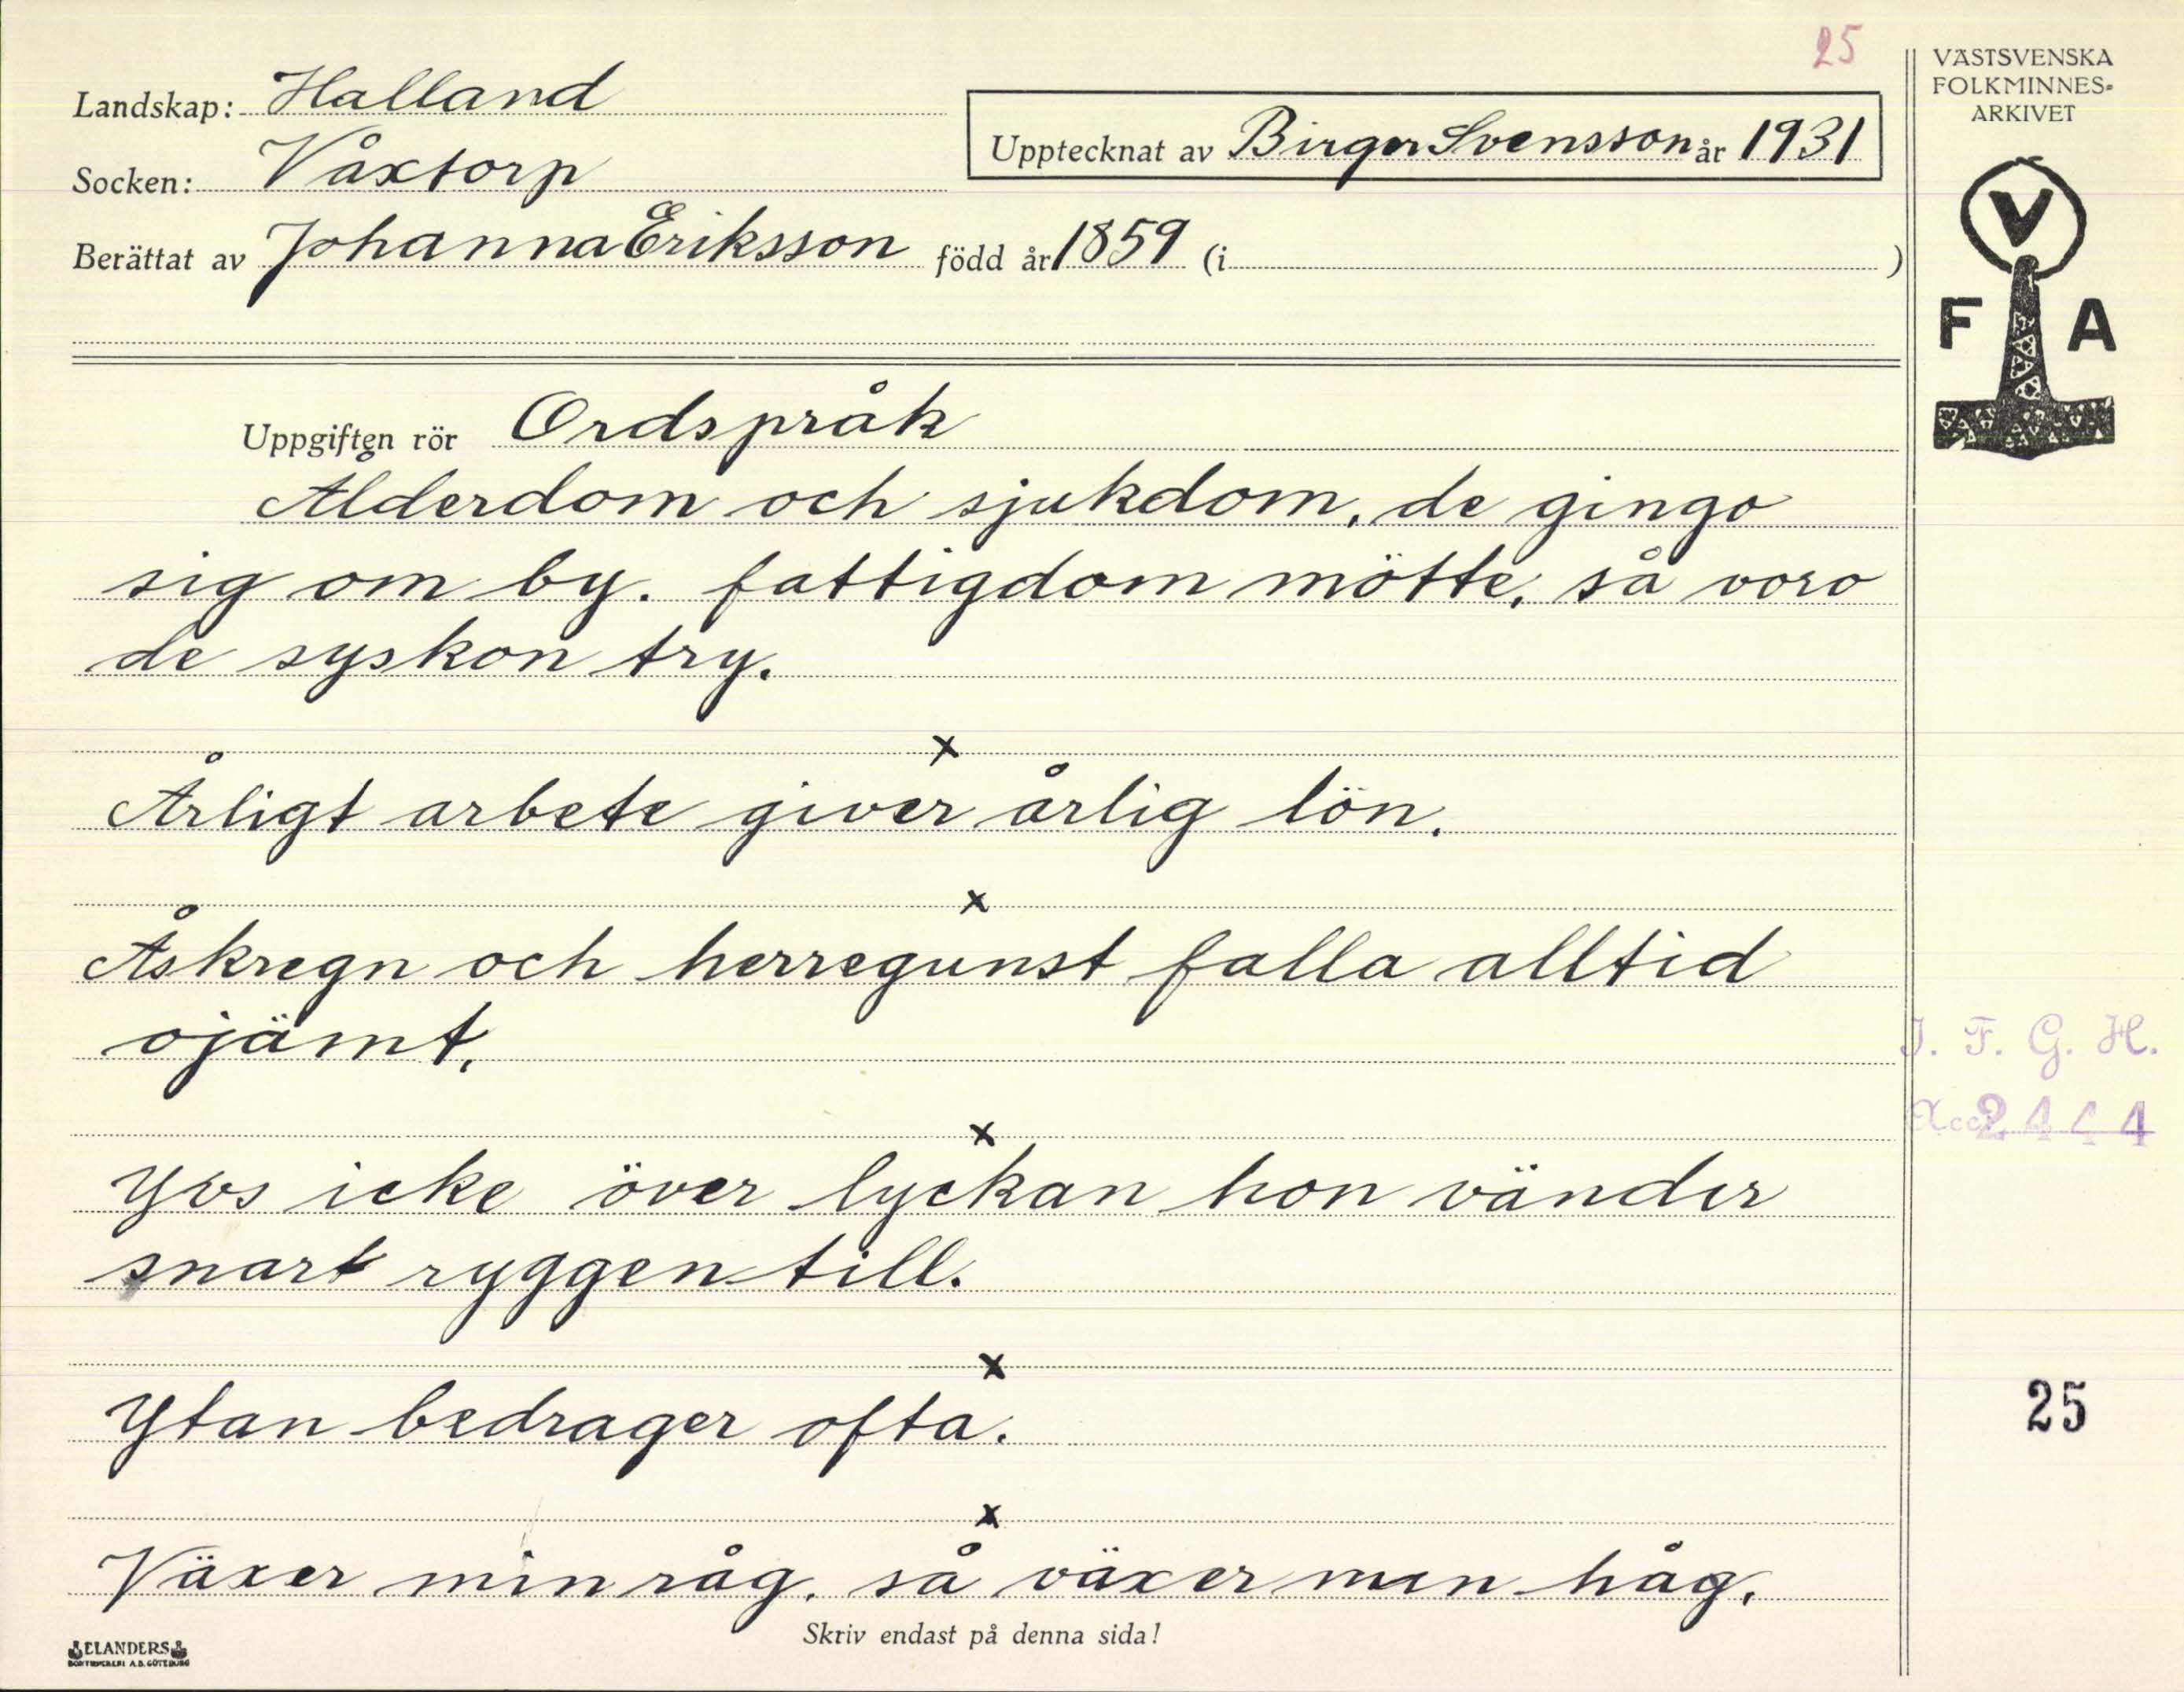 25
VÄSTSVENSKA
FOLKMINNES-
ARKIVET
Landskap: Halland
Upptecknat av Birger Svensson år 1931
Socken: Våxtorp
Berättat av Johanna Eriksson född år 1859 (i )
V
F A
Uppgiften rör Ordspråk
Ålderdom och sjukdom, de gingo
sig om by. fattigdom mötte, så voro
de syskon try.
x
Årligt arbete giver årlig lön.
x
Åskregn och herregunst falla alltid
ojämt.
I. F. G. H.
Acc. 2444
x
Yvs icke över lyckan hon vänder
snart ryggen till.
x
Ytan bedrager ofta.
25
x
Växer min råg, så växer min håg.
Skriv endast på denna sida!
ELANDERS
BOKTRYCKERI A.B. GÖTEBORG